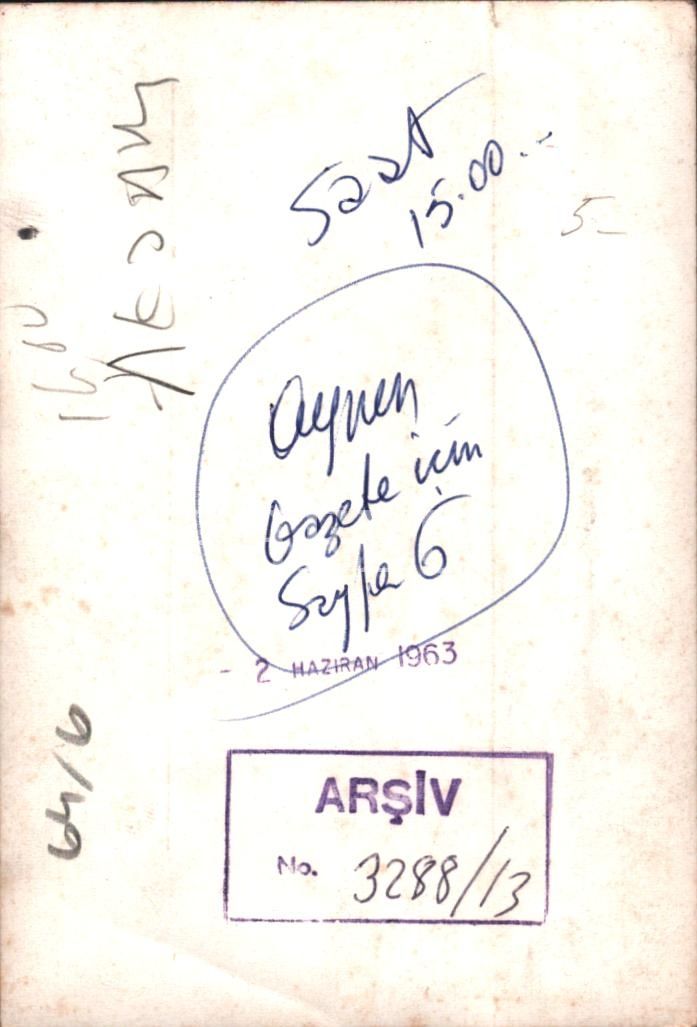 Saat
15.00.--
5-
Aynen
Gazete için
Sayfa 6
- 2 HAZIRAN 1963
64/6
ARŞİV
No. 3288/13